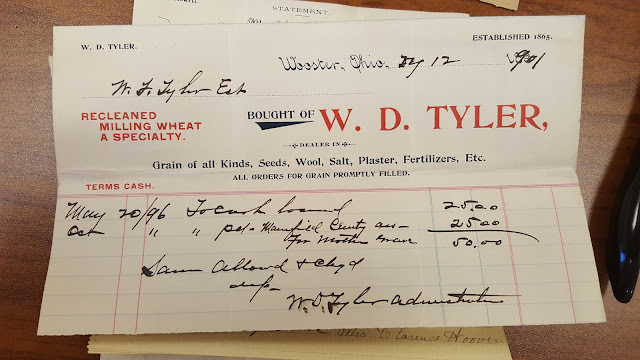 STATEMENT
W. D. TYLER.
ESTABLISHED 1865.
Wooster, Ohio, 12 1901
W. F. Tyler Est
RECLEANED
MILLING WHEAT
A SPECIALTY.
BOUGHT OF W. D. TYLER,
DEALER IN
Grain of all Kinds, Seeds, Wool, Salt, Plaster, Fertilizers, Etc.
ALL ORDERS FOR GRAIN PROMPTLY FILLED.
TERMS CASH.
May 20/96 To cash loaned 25.00
Oct " " pd 25.00
for Mother 50.00
Same Allowd & Chgd
W. D. Tyler administrator
Mrs. Clarence Hoover